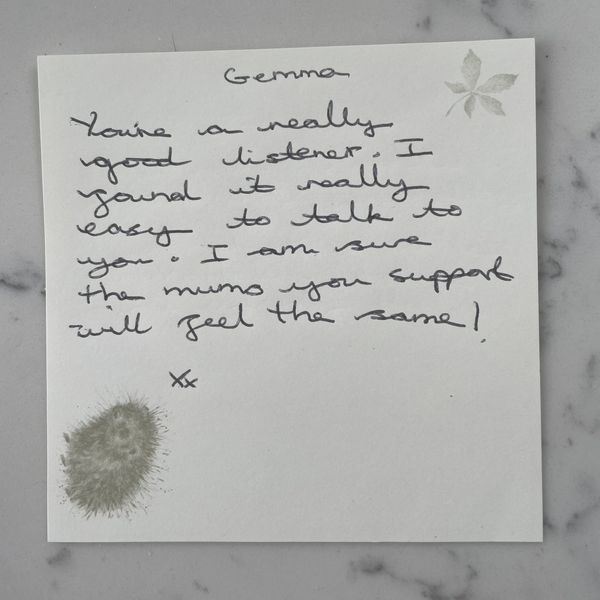 Gemma
You're a really
good listener. I
found it really
easy to talk to
you. I am sure
the mums you support
will feel the same!
xx